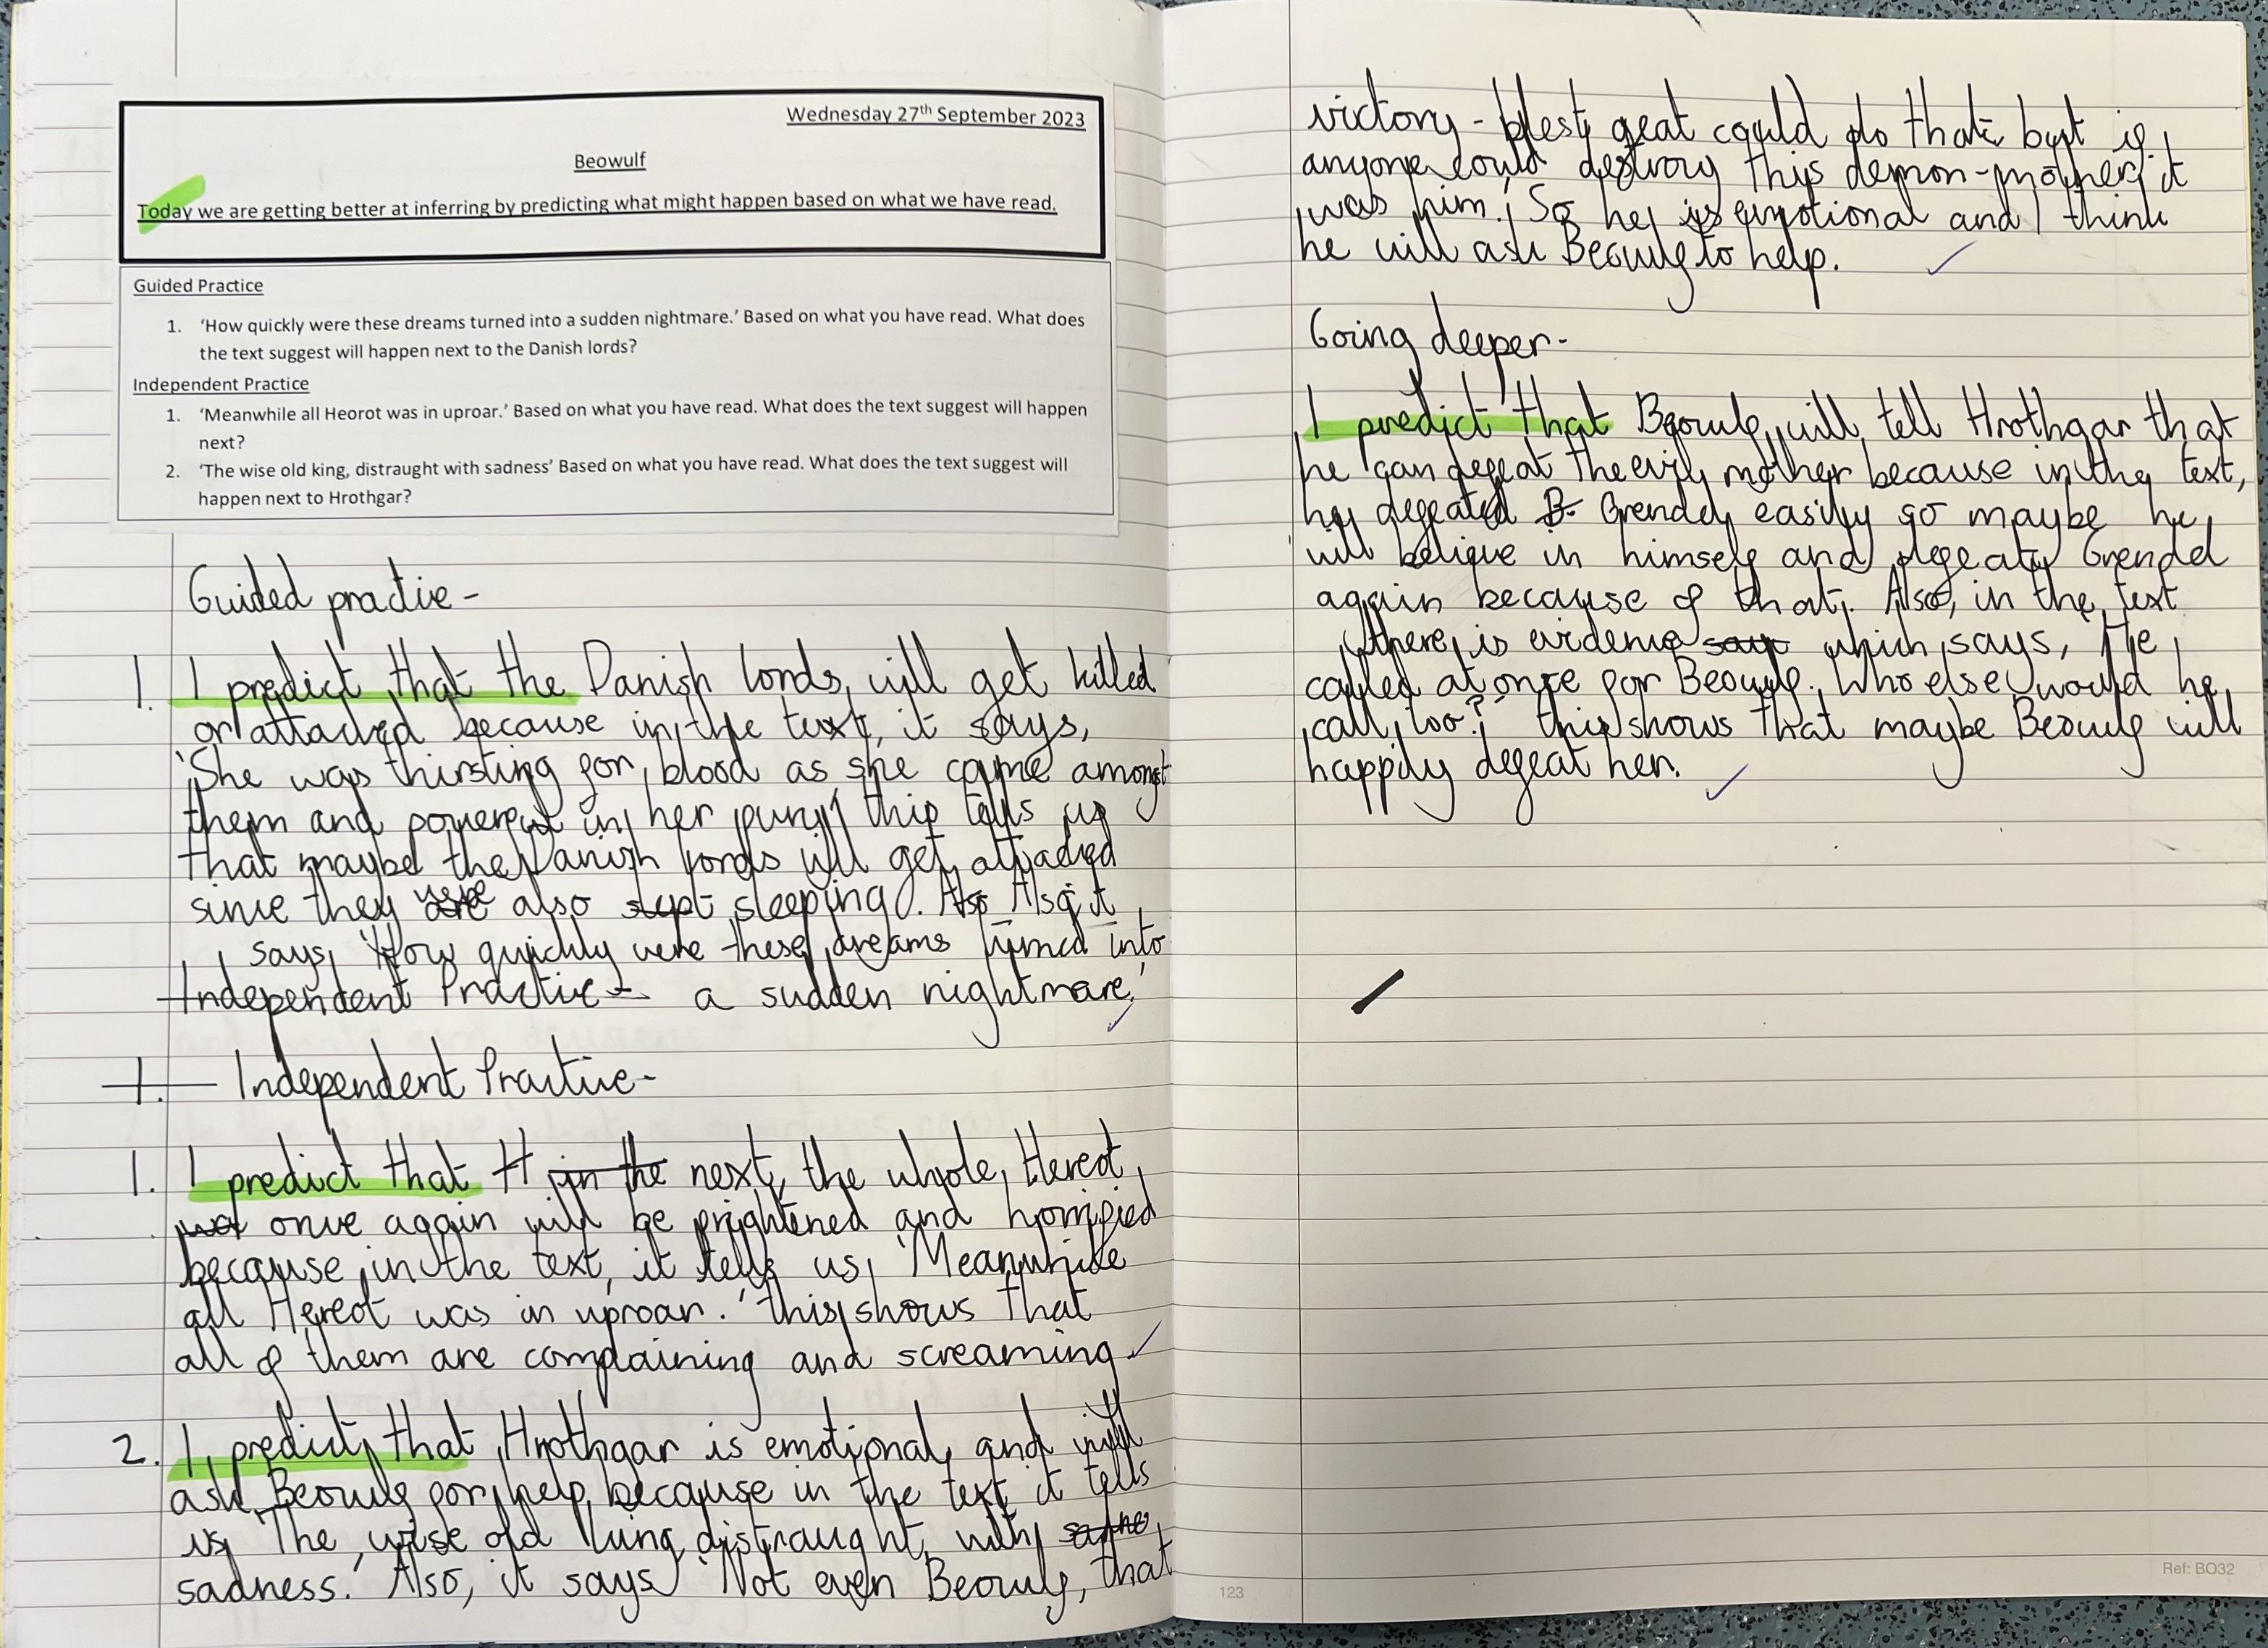 Wednesday 27th September 2023
Beowulf
Today we are getting better at inferring by predicting what might happen based on what we have read.
Guided Practice
1. ‘How quickly were these dreams turned into a sudden nightmare.’ Based on what you have read. What does
the text suggest will happen next to the Danish lords?
Independent Practice
1. ‘Meanwhile all Heorot was in uproar.’ Based on what you have read. What does the text suggest will happen
next?
2. ‘The wise old king, distraught with sadness’ Based on what you have read. What does the text suggest will
happen next to Hrothgar?
Guided practie -
1. I predict that the Danish lords, will get killed
or attacked because in the text, it says,
'She was thirsting for blood as she came amongst
them and powerful in her fury' this tells us
that maybe the Danish lords will get attacked
since they were also slept sleeping. Also Also, it
says, 'How quickly were these dreams turned into
Independent Practice - a sudden nightmare.'
1. Independent Practice -
1. I predict that H in the next, the whole, Hereot,
once again will be frightened and horrified
because in the text, it tells us, 'Meanwhile
all Hereot was in uproar.' this shows that
all of them are complaining and screaming
2. I predict, that Hrothgar is emotional, and will
ask Beowulf for help, because in the text it tells
us, 'The wise old king, distraught with
sadness.' Also, it says 'Not even Beowulf, that
victory - blest geat could do that but if
anyone could destroy this demon-mother, it
was him.' So he is emotional and I think
he will ask Beowulf to help.
Going deeper -
I predict that Beowulf, will, tell Hrothgar that
he can defeat the evil mother because in the text,
he defeated B. Grendel, easily so maybe he
will believe in himself and defeat Grendel
again because of that. Also, in the text
there is evidence says which says, 'He
called at once for Beowulf. Who else would he
call too?' this shows that maybe Beowulf will
happily defeat her.
123
Ref: BO32